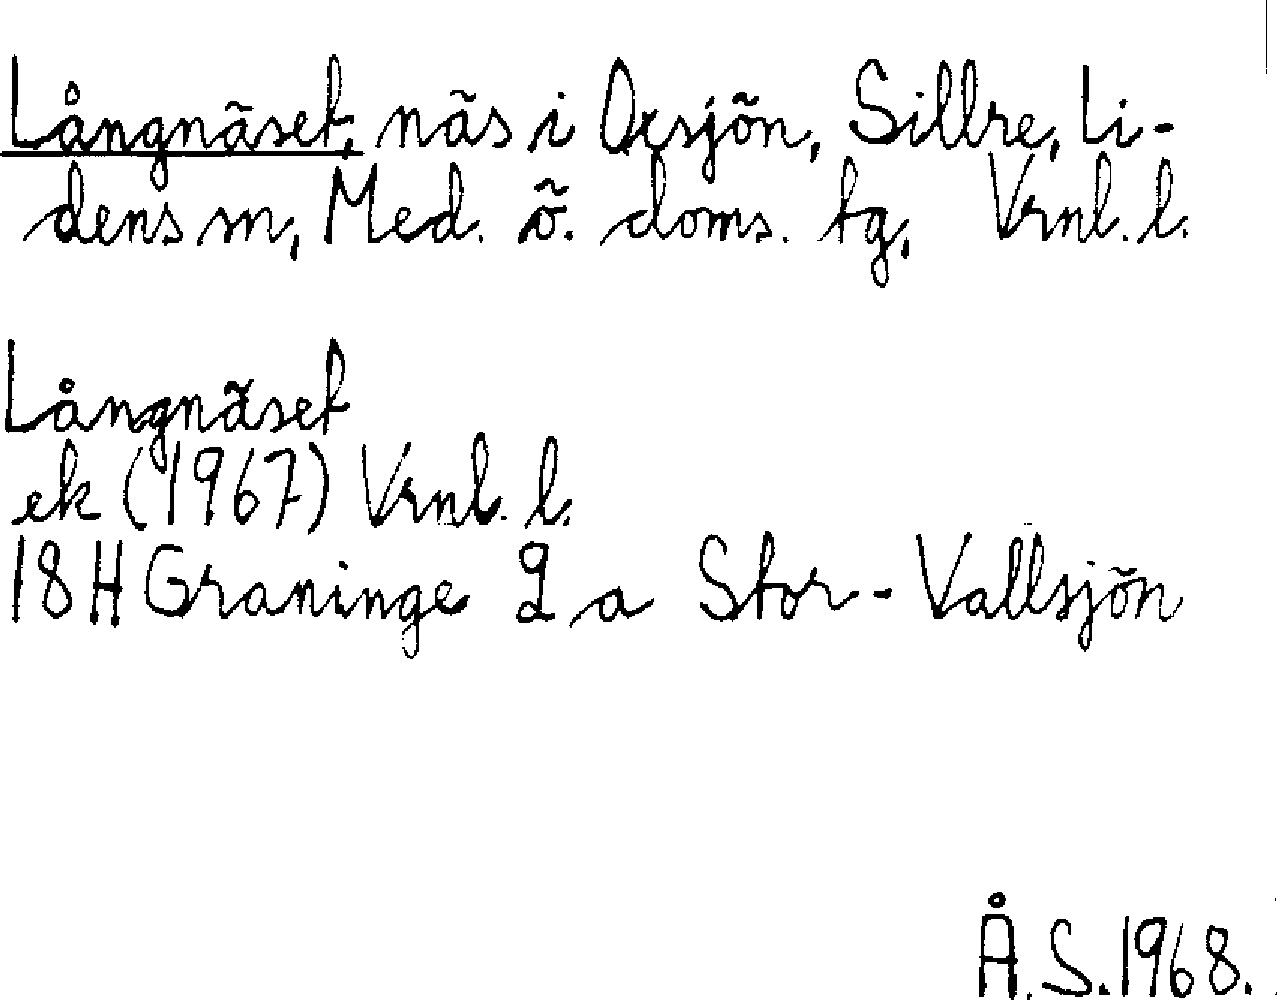 Långnäset, näs i Oxsjön, Sillre, Li-
dens sn, Med. ö. doms. tg, Vrnl. l.
Långnäset
ek (1967) Vrnl. l.
18H Graninge 2 a Stor-Vallsjön
Å. S. 1968.